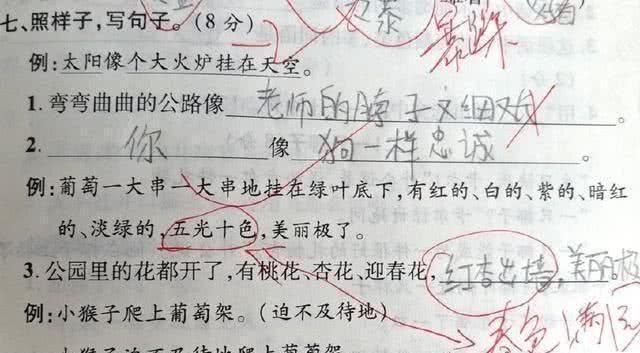 七、照样子，写句子。(8分) -2
例：太阳像个大火炉挂在天空。
1. 弯弯曲曲的公路像 老师的脖子又细又
2. 你 像 狗一样忠诚 。
例：葡萄一大串一大串地挂在绿叶底下，有红的、白的、紫的、暗红
的、淡绿的，五光十色，美丽极了。
3. 公园里的花都开了，有桃花、杏花、迎春花，红杏出墙，美丽极
例：小猴子爬上葡萄架。(迫不及待地) 春色满园
小猴子迫不及待地爬上葡萄架